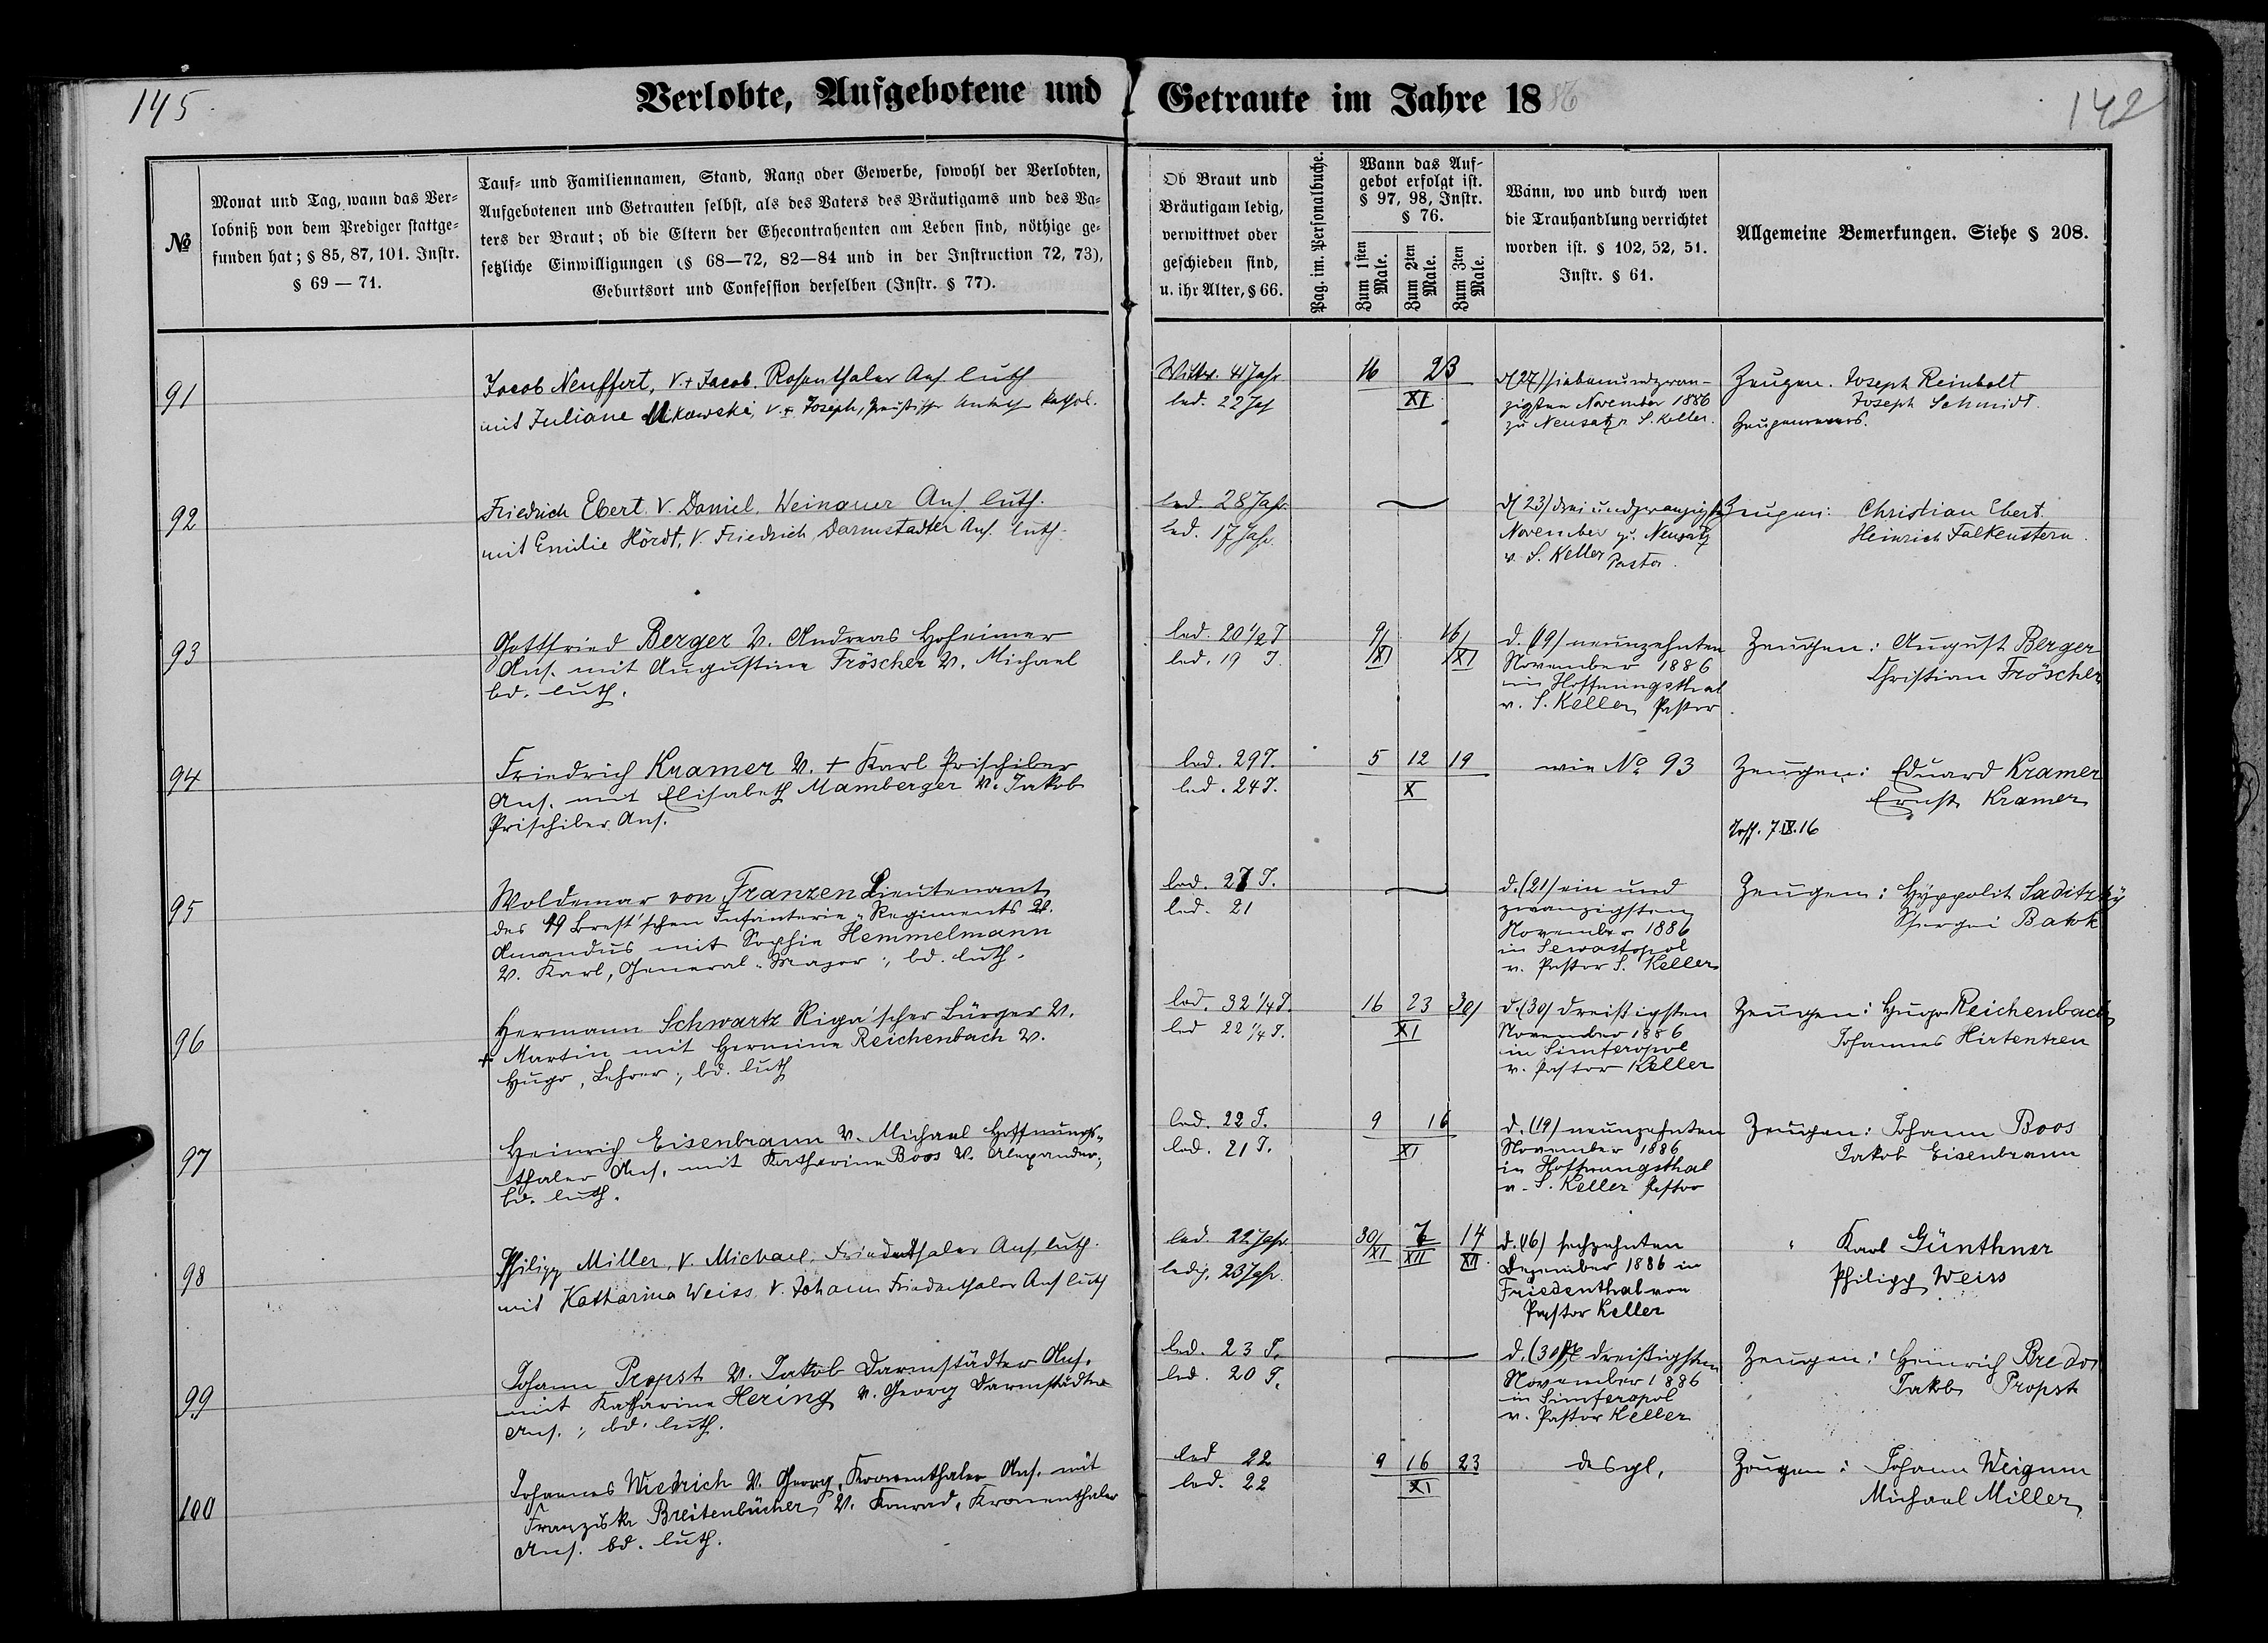 145.
Verlobte, Aufgebotene und
Getraute im Jahre 1886
142
№
Monat und Tag, wann das Ver-
lobniß von dem Prediger stattge-
funden hat; § 85, 87, 101. Instr.
§ 69 — 71.
Tauf- und Familiennamen, Stand, Rang oder Gewerbe, sowohl der Verlobten,
Aufgebotenen und Getrauten selbst, als des Vaters des Bräutigams und des Va-
ters der Braut; ob die Eltern der Ehecontrahenten am Leben sind, nöthige ge-
setzliche Einwilligungen (§ 68—72, 82—84 und in der Instruction 72, 73),
Geburtsort und Confession derselben (Instr. § 77).
Ob Braut und
Bräutigam ledig,
verwittwet oder
geschieden sind,
u. ihr Alter, § 66.
Pag. im. Personalbuche.
Wann das Auf-
gebot erfolgt ist.
§ 97, 98, Instr.
§ 76.
Zum 1sten
Male.
Zum 2ten
Male.
Zum 3ten
Male.
Wann, wo und durch wen
die Trauhandlung verrichtet
worden ist. § 102, 52, 51.
Instr. § 61.
Allgemeine Bemerkungen. Siehe § 208.
91
Jacob Neuffert, V. + Jacob. Rosenthaler Ans. luth
mit Juliane Mikowski, V. + Joseph, Preußischer Unterth kathol.
Wittwr. 41 Jahr
led. 22 Jah
16 23
XI
d (27) siebenundzwan-
zigsten November 1886
zu Neusatz S. Keller.
Zeugen. Joseph Reinbolt
Joseph Schmidt.
92
Friedrich Ebert. V. Daniel. Weinauer Ans. luth.
mit Emilie Hördt, V. Friedrich Darmstadter Ans. luth.
led. 28 Jahr.
led. 17 Jahr.
d (23) dreiundzwanzigsten
November zu Neusatz
v. S. Keller Pastor.
Zeugen: Christian Ebert.
Heinrich Falkenstern.
93
Gottfried Berger V. Andreas Hoheimer
Ans. mit Augustine Fröscher V. Michael
bd. luth.
led. 20 1/2 J
led. 19 J.
9/XI 16/XI
d. (19) neunzehnten
November 1886
in Hoffnungsthal
v. S. Keller, Pastor.
Zeugen: August Berger
Christian Fröscher
94
Friedrich Kramer V. + Karl Prischiber
Ans. mit Elisabeth Mamberger V. Jakob
Prischiber Ans.
led. 29 J.
led. 24 J.
5 12 19
X
wie No 93
Zeugen: Eduard Kramer
Ernst Kramer
7.IX.16
95
Woldemar von Franzen Lieutenant
des 49 Brest'schen Infanterie-Regiments V.
Amandus mit Sophie Hemmelmann
V. Karl, General-Major; bd. luth.
led. 27 J.
led. 21
d. (21) ein und
zwanzigsten
November 1886
in Sewastopol
v. Pastor S. Keller
Zeugen: Hyppolit Saditzky
96
Hermann Schwartz Riga'scher Bürger V.
+ Martin mit Hermine Reichenbach V.
Hugo, Lehrer; bd. luth
led. 32 1/4 J.
led 22 1/4 J.
16 23 30/
XI
d. (30) dreißigsten
November 1886
in Simferopol
v. Pastor Keller
Zeugen: Hugo Reichenbach
Johannes Hirtentreu
97
Heinrich Eisenbraun V. Michael Hoffnungs-
thaler Ans. mit Katharina Boos V. Alexander;
bd. luth.
led. 22 J.
led. 21 J.
9 16
XI
d. (19) neunzehnten
November 1886
in Hoffnungsthal
v. S. Keller Pastor
Zeugen: Johann Boos
Jakob Eisenbraun
98
Philipp Miller, V. Michael, Friedenthaler Ans. luth.
mit Katharina Weiss. V. Johann Friedenthaler Ans luth
led. 22 Jahr.
ledig, 23 Jahr.
30/XI 7/XII 14/XII
d. (16) sechzehnten
Dezember 1886 in
Friedenthal von
Pastor Keller
" Karl Günthner
Philipp Weiss
99
Johann Propst V. Jakob Darmstädter Ans.
mit Katharina Hering V. Georg Darmstädter
Ans.; bd. luth.
led. 23 J.
led. 20 J.
d. (30) dreißigsten
November 1886
in Simferopol
v. Pastor Keller
Zeugen: Heinrich Bredo
Jakob Propst
100
Johannes Wiedrich V. Georg, Kronenthaler Ans. mit
Franziska Breitenbücher V. Konrad, Kronenthaler
Ans. bd. luth.
led 22
led. 22
9 16 23
XI
desgl.
Zeugen: Johann Weigum
Michael Miller